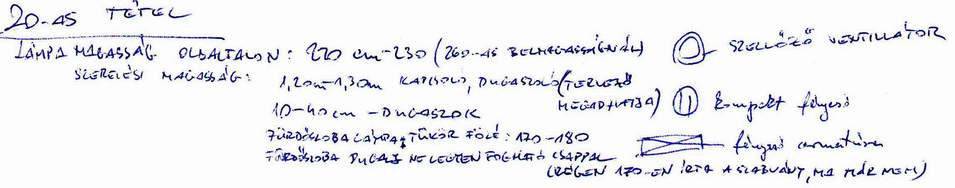 20-AS TÉTEL
LÁMPA MAGASSÁG OLDALFALON: 220 cm-230 (260-AS BELMAGASSÁGNÁL)
SZELLŐZŐ VENTILLÁTOR
SZERELÉSI MAGASSÁG: 1,20m-1,30m KAPCSOLÓ, DUGASZOLÓ (TERVEZŐ MEGADHATJA)
10-40cm - DUGASZOK
kompakt fénycső
FÜRDŐSZOBA LÁMPA TÜKÖR FÖLÉ: 170-180
fénycső armatúra
FÜRDŐSZOBA DUGALJ NE LEGYEN FOGHATÓ CSAPPAL
(RÉGEN 170-EN ÍRTA A SZABVÁNY, MA MÁR NEM)